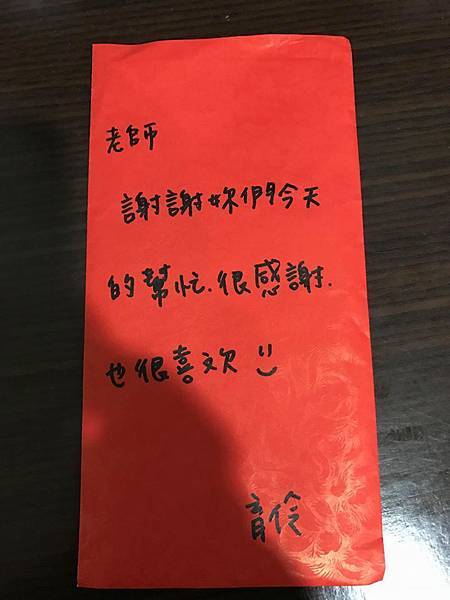 老師
謝謝妳們今天
的幫忙.很感謝.
也很喜欢
育伶